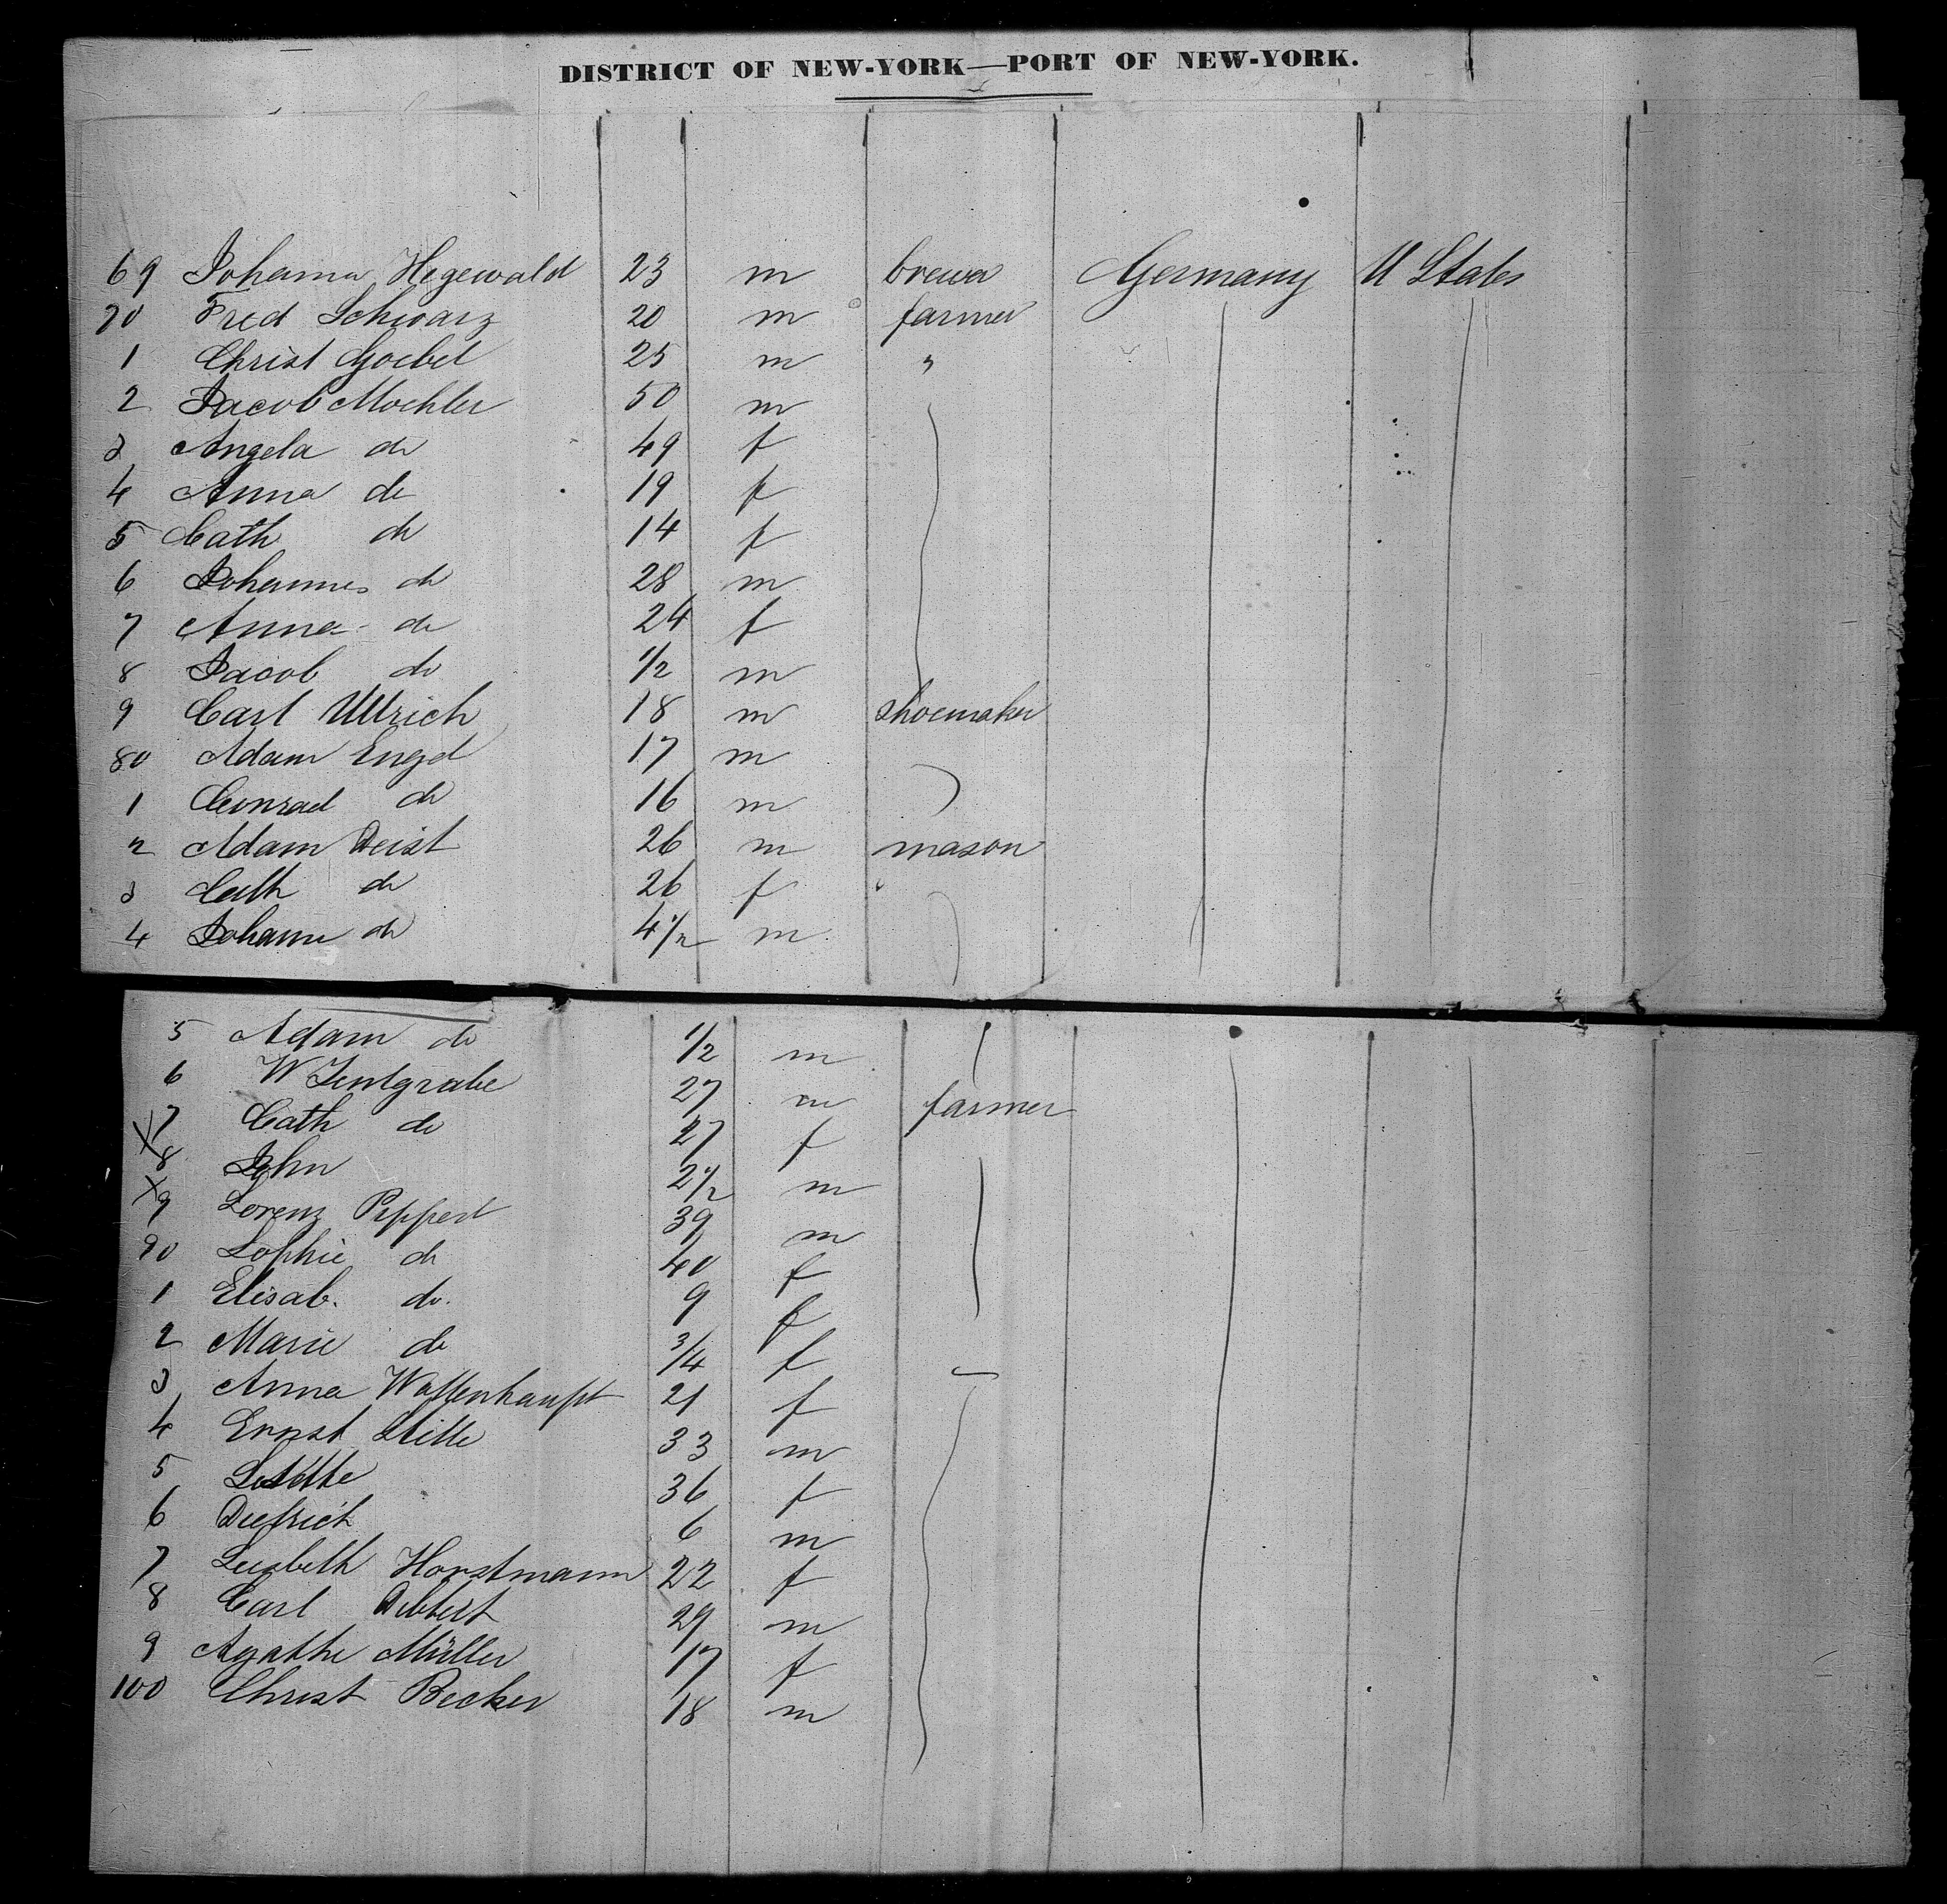 DISTRICT OF NEW-YORK—PORT OF NEW-YORK.
69 Johann Hegewald 23 m brewer Germany U States
70 Fred Schwarz 20 m farmer
1 Christ Goebel 25 m "
2 Jacob Moehler 50 m
3 Angela do 49 f
4 Anna do 19 f
5 Cath do 14 f
6 Johannes do 28 m
7 Anna do 24 f
8 Jacob do 1/2 m
9 Carl Ullrich 18 m shoemaker
80 Adam Engel 17 m
1 Conrad do 16 m
2 Adam Deist 26 m mason
3 Cath do 26 f
4 Johann do 4 1/2 m
5 Adam do 1/2 m
6 W 27 m farmer
7 Cath do 27 f
X 8 John 2 1/2 m
X 9 Lorenz Peppert 39 m
90 Sophie do 40 f
1 Elisab. do. 9 f
2 Marie do 3/4 f
3 Anna Wassenhaupt 21 f
4 Ernst Stille 33 m
5 36 f
6 Diedrich 6 m
7 Horstmann 22 f
8 Carl Dibbert 29 m
9 Agathe Müller 17 f
100 Christ Becker 18 m